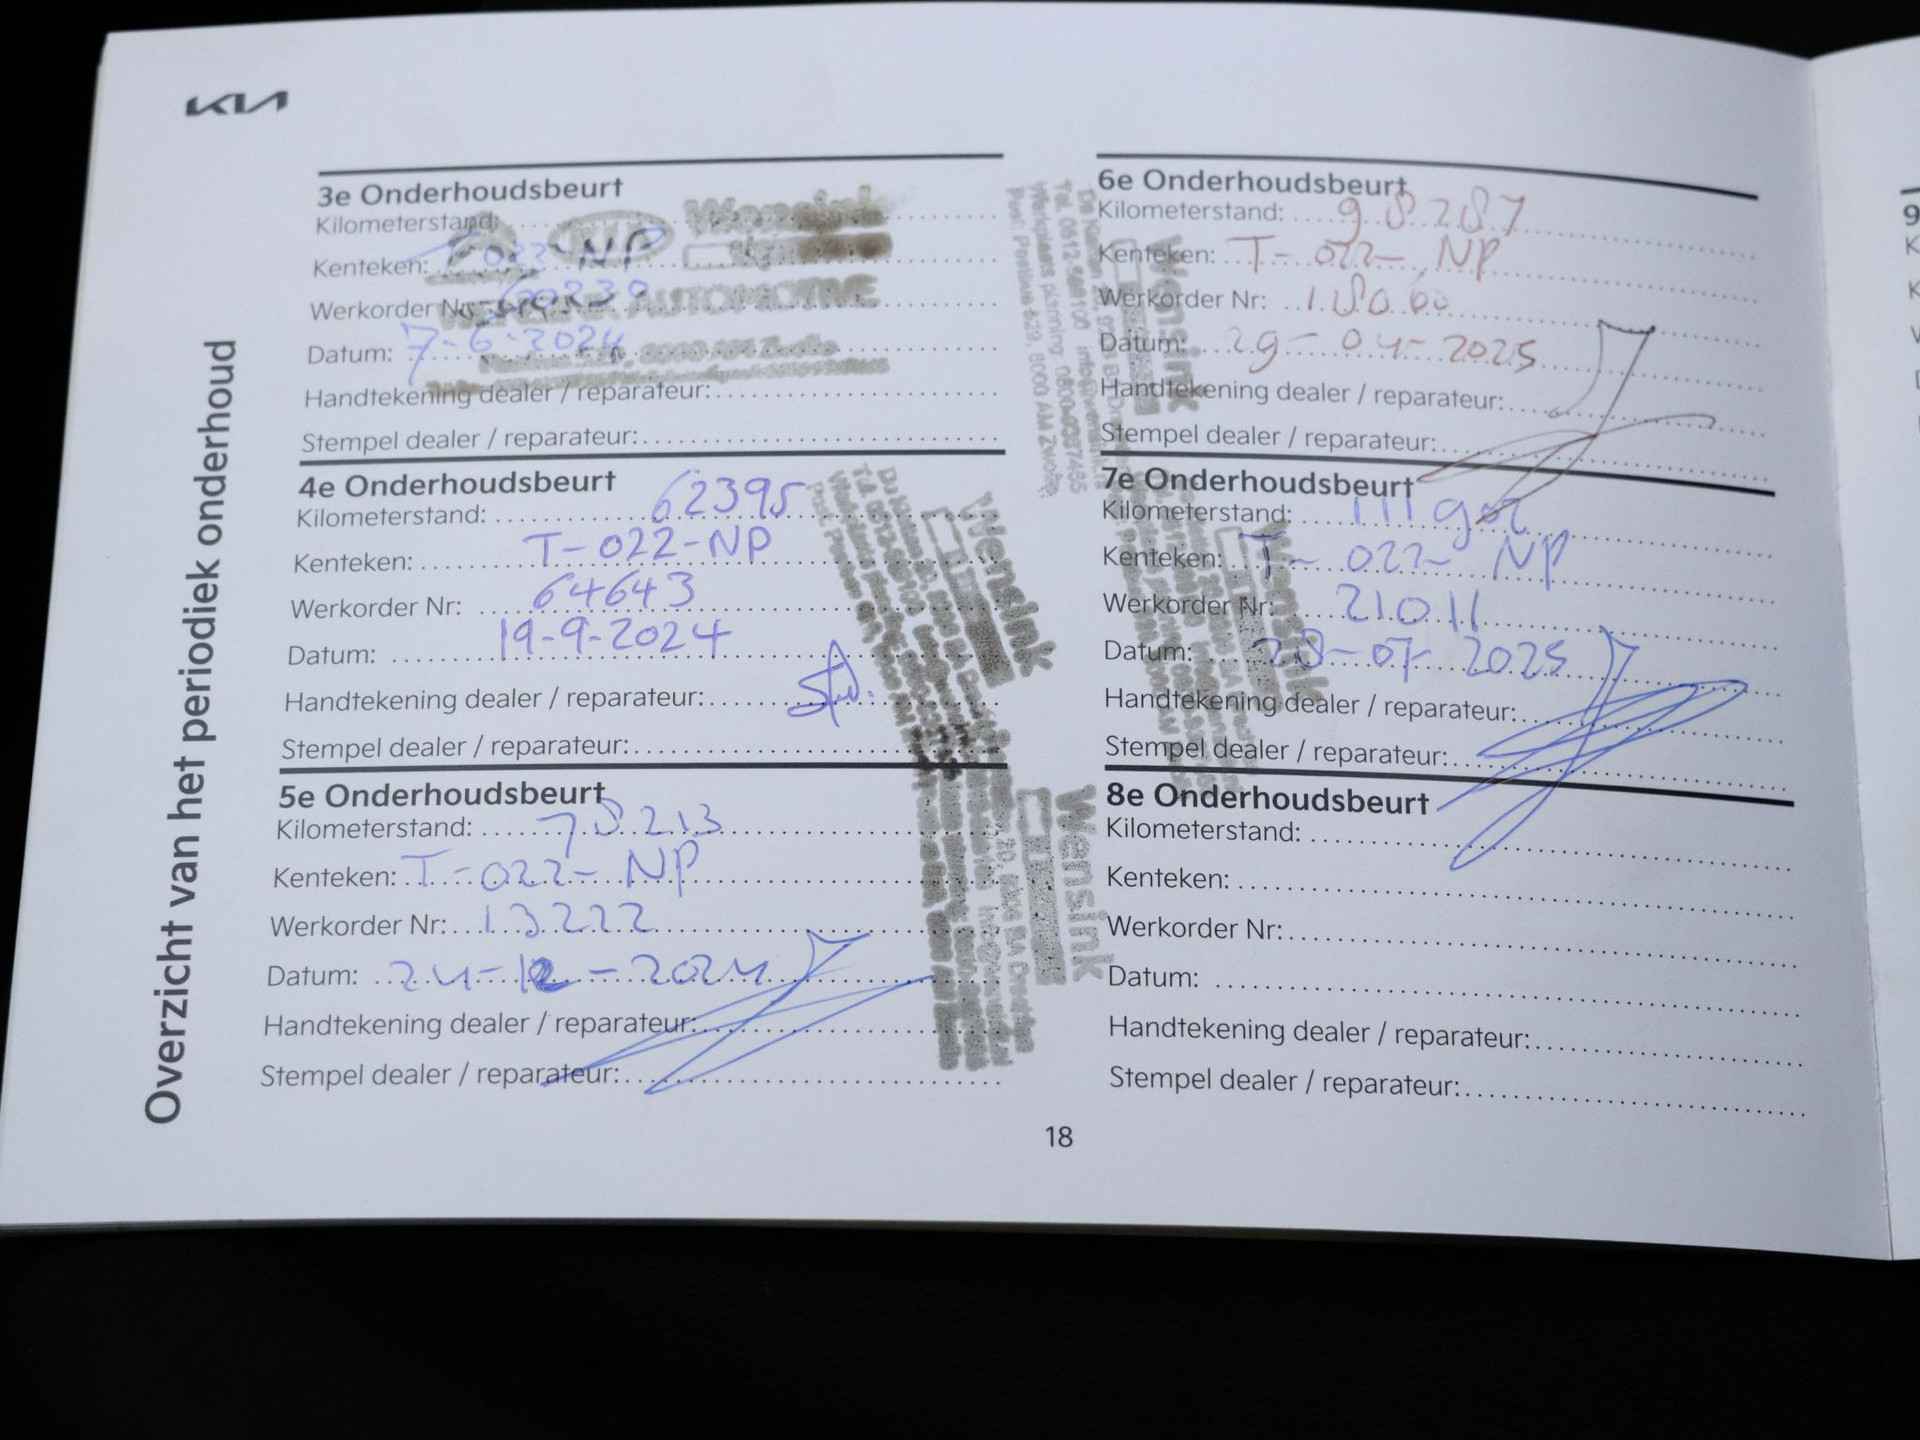 KIA
Overzicht van het periodiek onderhoud
3e Onderhoudsbeurt
Kilometerstand:
Kenteken: T-022-NP
Werkorder Nr:
Datum: 7-6-2024
Handtekening dealer / reparateur:
Stempel dealer / reparateur:
Wensink
AUTOMOTIVE
4e Onderhoudsbeurt
Kilometerstand: 62395
Kenteken: T-022-NP
Werkorder Nr: 64643
Datum: 19-9-2024
Handtekening dealer / reparateur:
Stempel dealer / reparateur:
Wensink
5e Onderhoudsbeurt
Kilometerstand: 78213
Kenteken: T-022-NP
Werkorder Nr: 13222
Datum: 24-12-2024
Handtekening dealer / reparateur:
Stempel dealer / reparateur:
Wensink
6e Onderhoudsbeurt
Kilometerstand: 98287
Kenteken: T-022-NP
Werkorder Nr: 18060
Datum: 29-04-2025
Handtekening dealer / reparateur:
Stempel dealer / reparateur:
Wensink
7e Onderhoudsbeurt
Kilometerstand:
Kenteken: T-022-NP
Werkorder Nr: 21011
Datum: 28-07-2025
Handtekening dealer / reparateur:
Stempel dealer / reparateur:
Wensink
8e Onderhoudsbeurt
Kilometerstand:
Kenteken:
Werkorder Nr:
Datum:
Handtekening dealer / reparateur:
Stempel dealer / reparateur:
18
9